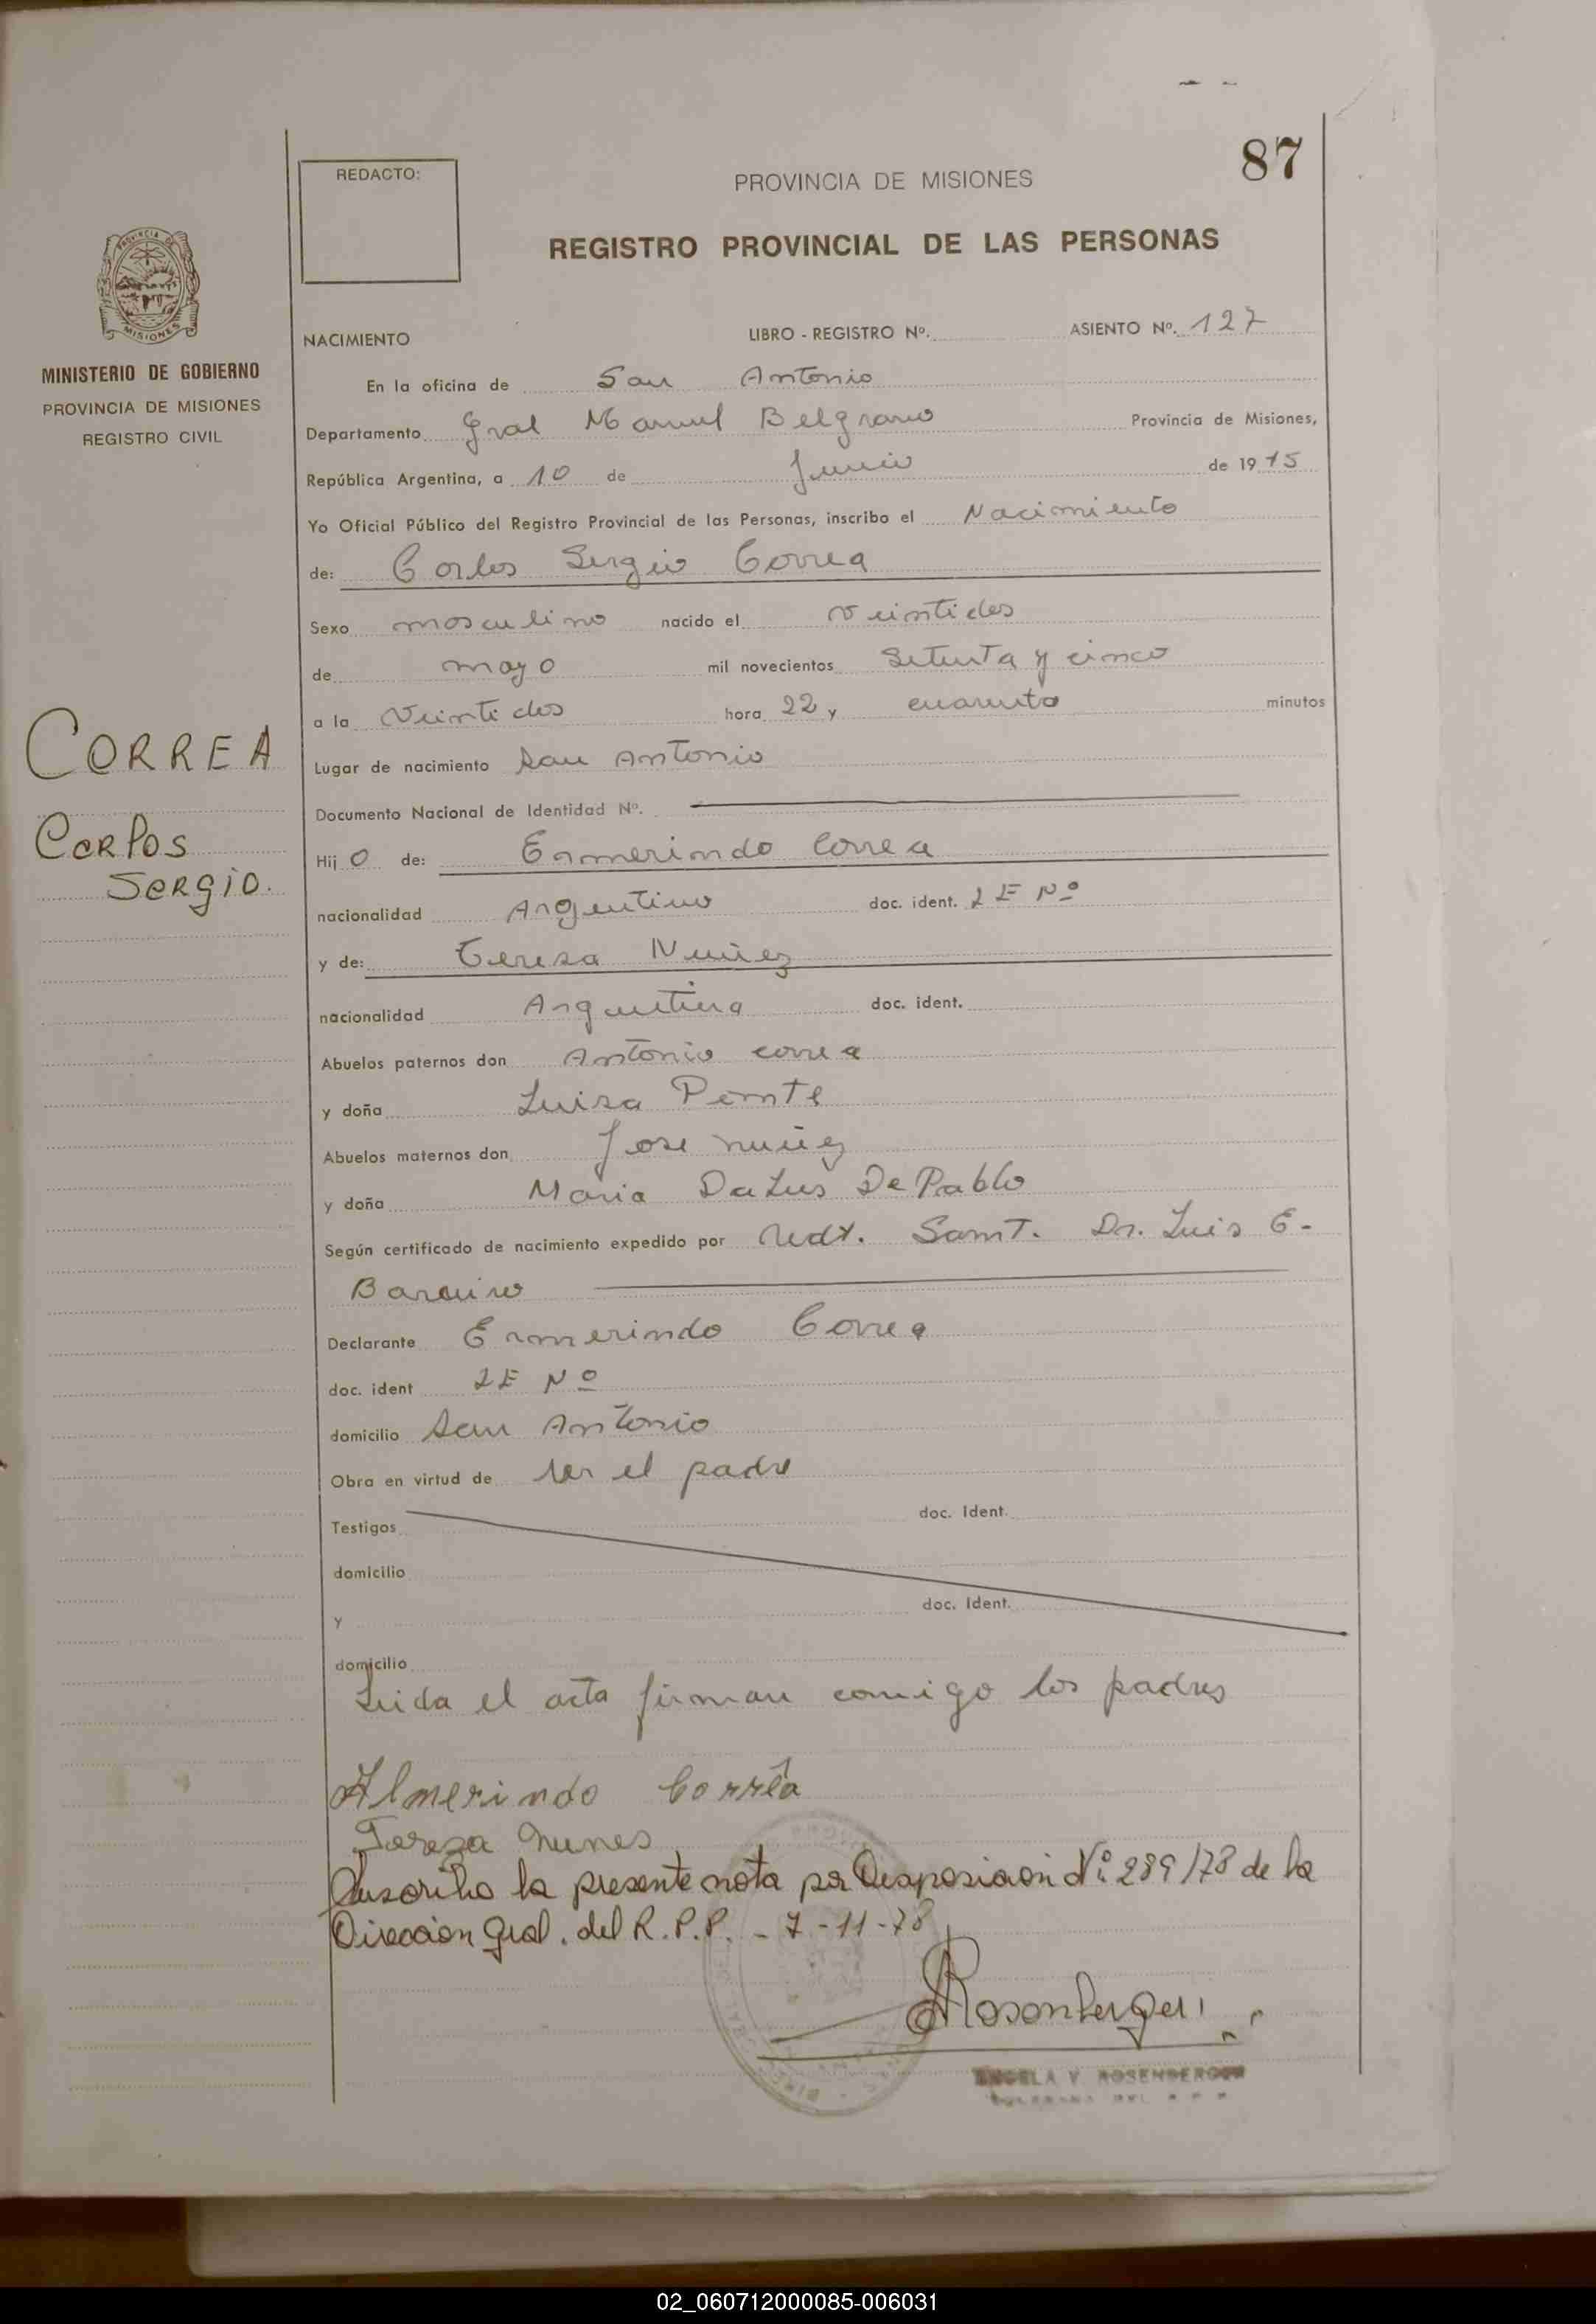 87
REDACTO:
PROVINCIA DE MISIONES
REGISTRO PROVINCIAL DE LAS PERSONAS
PROVINCIA DE
MISIONES
MINISTERIO DE GOBIERNO
PROVINCIA DE MISIONES
REGISTRO CIVIL
NACIMIENTO LIBRO - REGISTRO Nº. ASIENTO Nº. 127
En la oficina de San Antonio
Departamento Gral Manuel Belgrano Provincia de Misiones,
República Argentina, a 10 de Junio de 1975
Yo Oficial Público del Registro Provincial de las Personas, inscribo el Nacimiento
de: Carlos Sergio Correa
Sexo masculino nacido el veintidos
de mayo mil novecientos Setenta y cinco
a la Veintidos hora 22 y cuarenta minutos
CORREA
Carlos
Sergio.
Lugar de nacimiento San Antonio
Documento Nacional de Identidad Nº.
Hij o de: Enmerindo Correa
nacionalidad Argentino doc. ident. LE Nº
y de: Teresa Nuñez
nacionalidad Argentina doc. ident.
Abuelos paternos don Antonio correa
y doña Luisa
Abuelos maternos don Jose nuñez
y doña Maria Da Lus De Pablo
Según certificado de nacimiento expedido por Sanit. Dr. Luis E.
Declarante Enmerindo Correa
doc. ident LE Nº
domicilio San Antonio
Obra en virtud de ser el padre
Testigos doc. Ident.
domicilio
y doc. Ident.
domicilio
Leida el acta firman comigo los padres
Almerindo Corrêa
Tereza Nunes
Suscribo la presente nota por Disposicion Nº: 289/78 de la
Direccion Gral. del R.P.P. - 7-11-78
Rosenberger
ANGELA V. ROSENBERGER